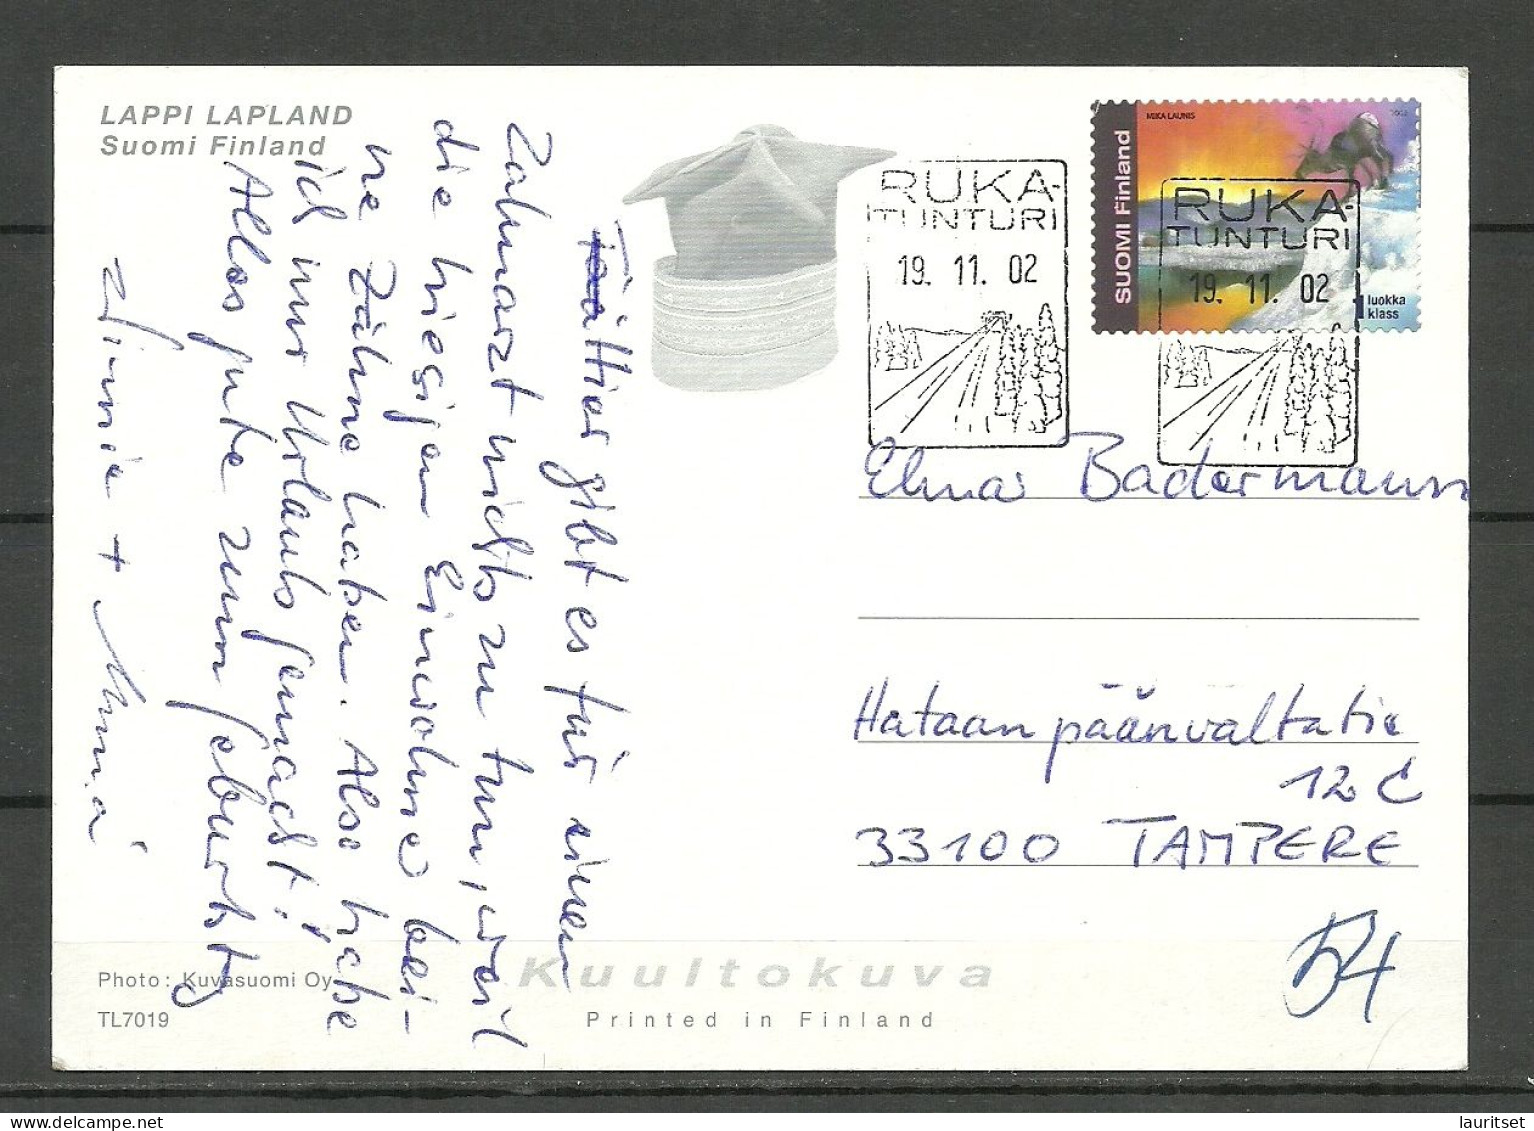 LAPPI LAPLAND
Suomi Finland
Hier gibt es für einen
Zahnarzt nichts zu tun, weil
die hiesigen Einwohner kei-
ne Zähne haben. Also habe
ich nur Urlaub gemacht!
Alles gute zum Geburtstg
+
Photo: Kuvasuomi Oy
TL7019
Kuultokuva
Printed in Finland
RUKA-
TUNTURI
19. 11. 02
MIKA LAUNIS
2002
SUOMI Finland
1 luokka
klass
RUKA-
TUNTURI
19. 11. 02
Elmar Badermann
Hataanpäänvaltatie
12 C
33100 TAMPERE
54
lauritset